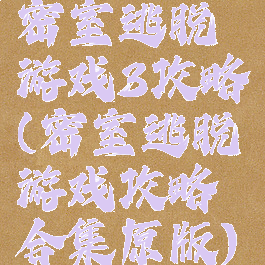 密室逃脱
游戏3攻略
(密室逃脱
游戏攻略
合集原版)